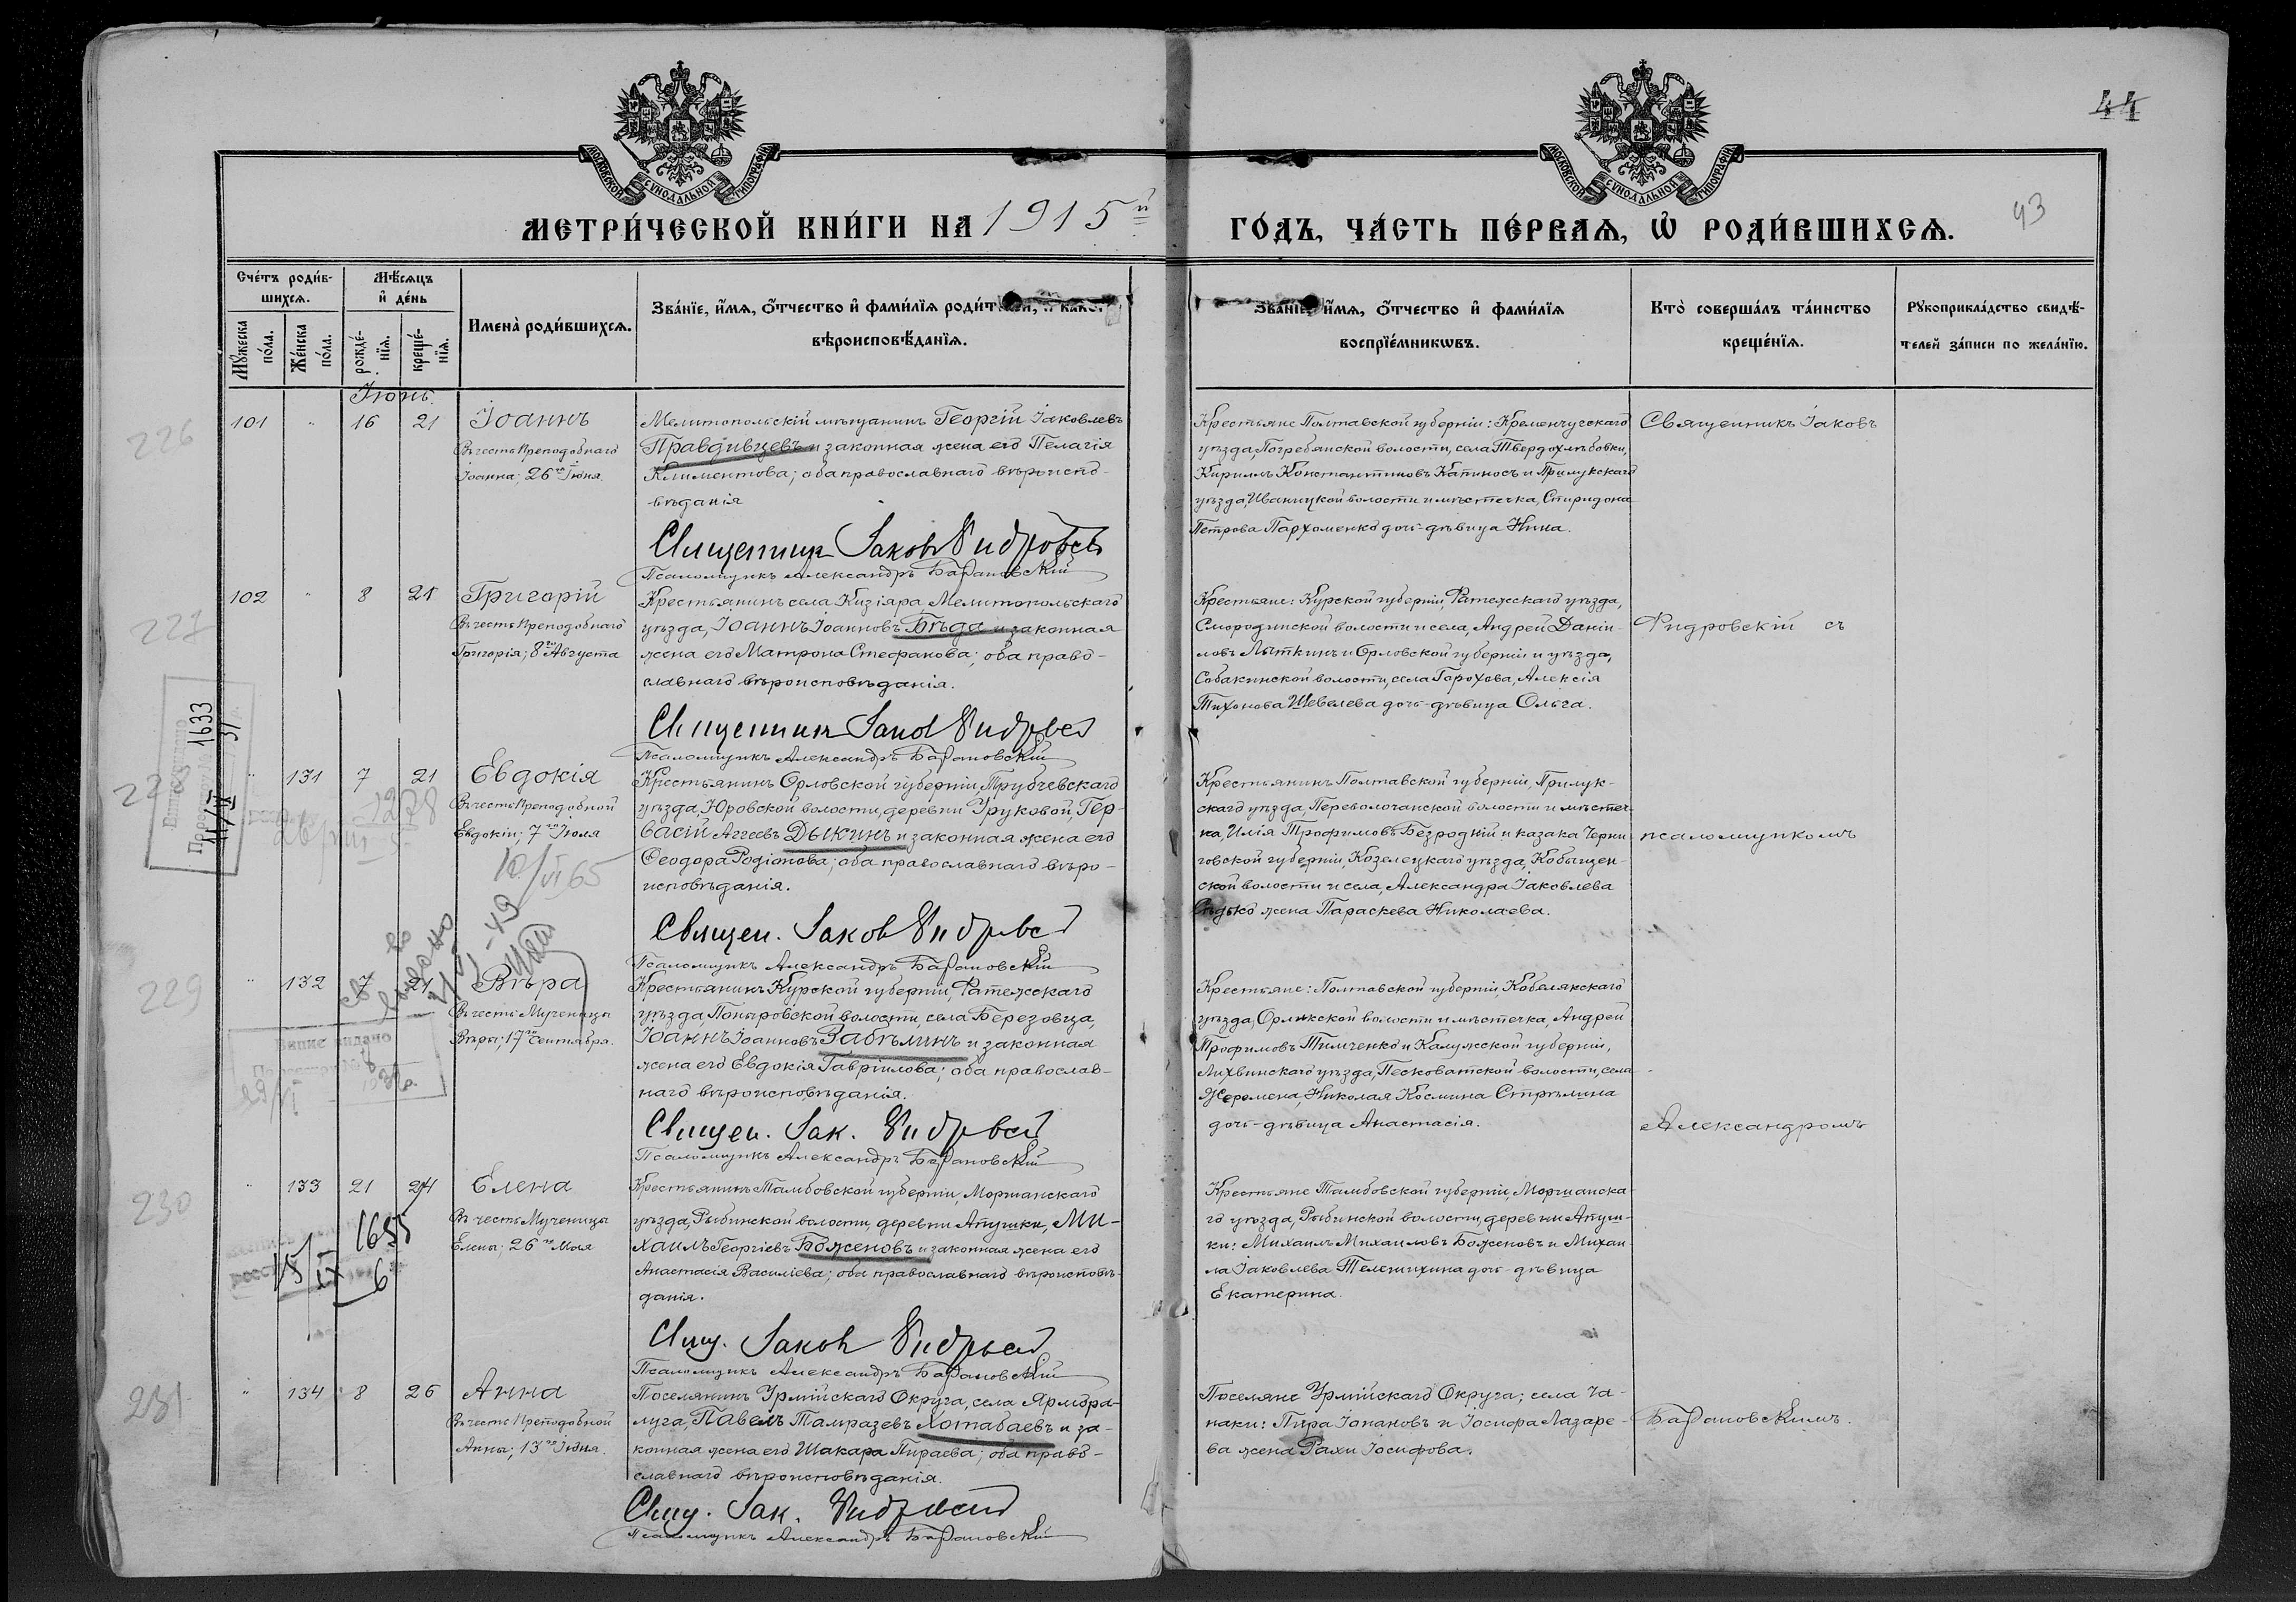 44
МОСКОВСКОЙ СѴНОДАЛЬНОЙ ТИПОГРАФІИ
МОСКОВСКОЙ СѴНОДАЛЬНОЙ ТИПОГРАФІИ
МЕТРИ́ЧЕСКОЙ КНИ́ГИ НА 1915й
ГО́ДЪ, ЧА́СТЬ ПЕ́РВАѦ, Ѽ РОДИ́ВШИХСѦ.
43
Сче́тъ роди́в-
шихсѧ.
Мꙋ́жеска по́ла.
Же́нска по́ла.
Мѣ́сѧцъ
и҆ де́нь
рожде́-
нїѧ.
креще́-
нїѧ.
Имена̀ роди́вшихсѧ.
Зва́нїе, и҆́мѧ, ѻ҆́тчество и҆ фами́лїѧ роди́т
вѣроисповѣ́данїѧ.
Зва́нїе, и҆́мѧ, ѻ҆́тчество и҆ фами́лїѧ
воспрїе́мникѡвъ.
Кто̀ соверша́лъ та́инство
креще́нїѧ.
Рꙋкоприкла́дство свидѣ́-
телей за́писи по жела́нїю.
Іюнь.
226
101 " 16 21
Іоаннъ
Въ честь Преподобнаго
Іоанна; 26го Іюня.
Мелитопольскій мѣщанинъ Георгій Іаковлевъ
Правдивцевъ и законная жена его Пелагія
Климентова; оба православнаго вѣроиспо-
вѣданія
Священникъ Іаковъ Ѳидровск
Псаломщикъ Александръ Барановскій
Крестьяне Полтавской губерніи: Кременчугскаго
уѣзда, Погребянской волости, села Твердохлѣбовки,
Кириллъ Константиновъ Катиносъ и Прилукскаго
уѣзда, Иваницкой волости и мѣстечка, Спиридона
Петрова Пархоменко дочь-дѣвица Нина.
Священникъ Іаковъ
227
102 " 8 21
Григорій
Въ честь Преподобнаго
Григорія; 8го Августа
Крестьянинъ села Кизіяра, Мелитопольскаго
уѣзда, Іоаннъ Іоанновъ Бѣда и законная
жена его Матрона Стефанова; оба право-
славнаго вѣроисповѣданія.
Священникъ Іаков Ѳидровск
Псаломщикъ Александръ Барановскій
Крестьяне: Курской губерніи, Фатежскаго уѣзда,
Смородинской волости и села, Андрей Даніи-
ловъ Лыткинъ и Орловской губерніи и уѣзда,
Собакинской волости, села Горохова, Алексія
Тихонова Шевелева дочь-дѣвица Ольга.
Ѳидровскій съ
1633
228
" 131 7 21
1278
Евдокія
Въ честь Преподобной
Евдокіи; 7го Іюля
10/VI 65
Крестьянинъ Орловской губерніи, Трубчевскаго
уѣзда, Юровской волости, деревни Уруковой, Гер-
васій Аггеевъ Дыкинъ и законная жена его
Ѳеодора Родіонова; оба православнаго вѣро-
исповѣданія.
Священ. Іаков Ѳидровск
Псаломщикъ Александръ Барановскій
Крестьянинъ Полтавской губерніи, Прилук-
скаго уѣзда, Переволочанской волости и мѣстеч-
ка, Илія Трофимовъ Безродній и казака Черни-
говской губерніи, Козелецкаго уѣзда, Кобыщен-
ской волости и села, Александра Іаковлева
жена Параскева Николаева.
псаломщикомъ
229
" 132 7 21
Вѣра
Въ честь Мученицы
Вѣры; 17го Сентября.
Крестьянинъ Курской губерніи, Фатежскаго
уѣзда, Поныровской волости, села Березовца,
Іоаннъ Іоанновъ Забѣлинъ и законная
жена его Евдокія Гавріилова; оба православ-
наго вѣроисповѣданія.
Священ. Іак. Ѳидровск
Псаломщикъ Александръ Барановскій
Крестьяне: Полтавской губерніи, Кобелякскаго
уѣзда, Орликской волости и мѣстечка, Андрей
Трофимовъ Тимченко и Калужской губерніи,
Лихвинскаго уѣзда, Песковатской волости, села
Жеремена, Николая Космина Стрѣлина
дочь-дѣвица Анастасія.
Александромъ
230
" 133 21 24
1655
Елена
Въ честь Мученицы
Елены; 26го Мая
Крестьянинъ Тамбовской губерніи, Моршанскаго
уѣзда, Рыбинской волости, деревни Апушки, Ми-
хаилъ Георгіевъ Боженовъ и законная жена его
Анастасія Василіева; оба православнаго вѣроисповѣ-
данія.
Свящ. Іаков Ѳидровск
Псаломщикъ Александръ Барановскій
Крестьяне Тамбовской губерніи, Моршанска-
го уѣзда, Рыбинской волости, деревни Апуш-
ки: Михаилъ Михаиловъ Боженовъ и Михаи-
ла Іаковлева Телешихина дочь-дѣвица
Екатерина.
231
" 134 8 26
Анна
Въ честь Преподобной
Анны; 13го Іюня.
Поселянинъ Урмійскаго Округа, села Ярмора-
луга, Павелъ Тамразевъ Хотабаевъ и за-
конная жена его Шакара Пираева; оба право-
славнаго вѣроисповѣданія.
Свящ. Іак. Ѳидровск
Псаломщикъ Александръ Барановскій
Поселяне Урмійскаго Округа; села Ча-
наки: Пира Іонановъ и Іосифа Лазаре-
ва жена Рахи Іосифова.
Барановскимъ.